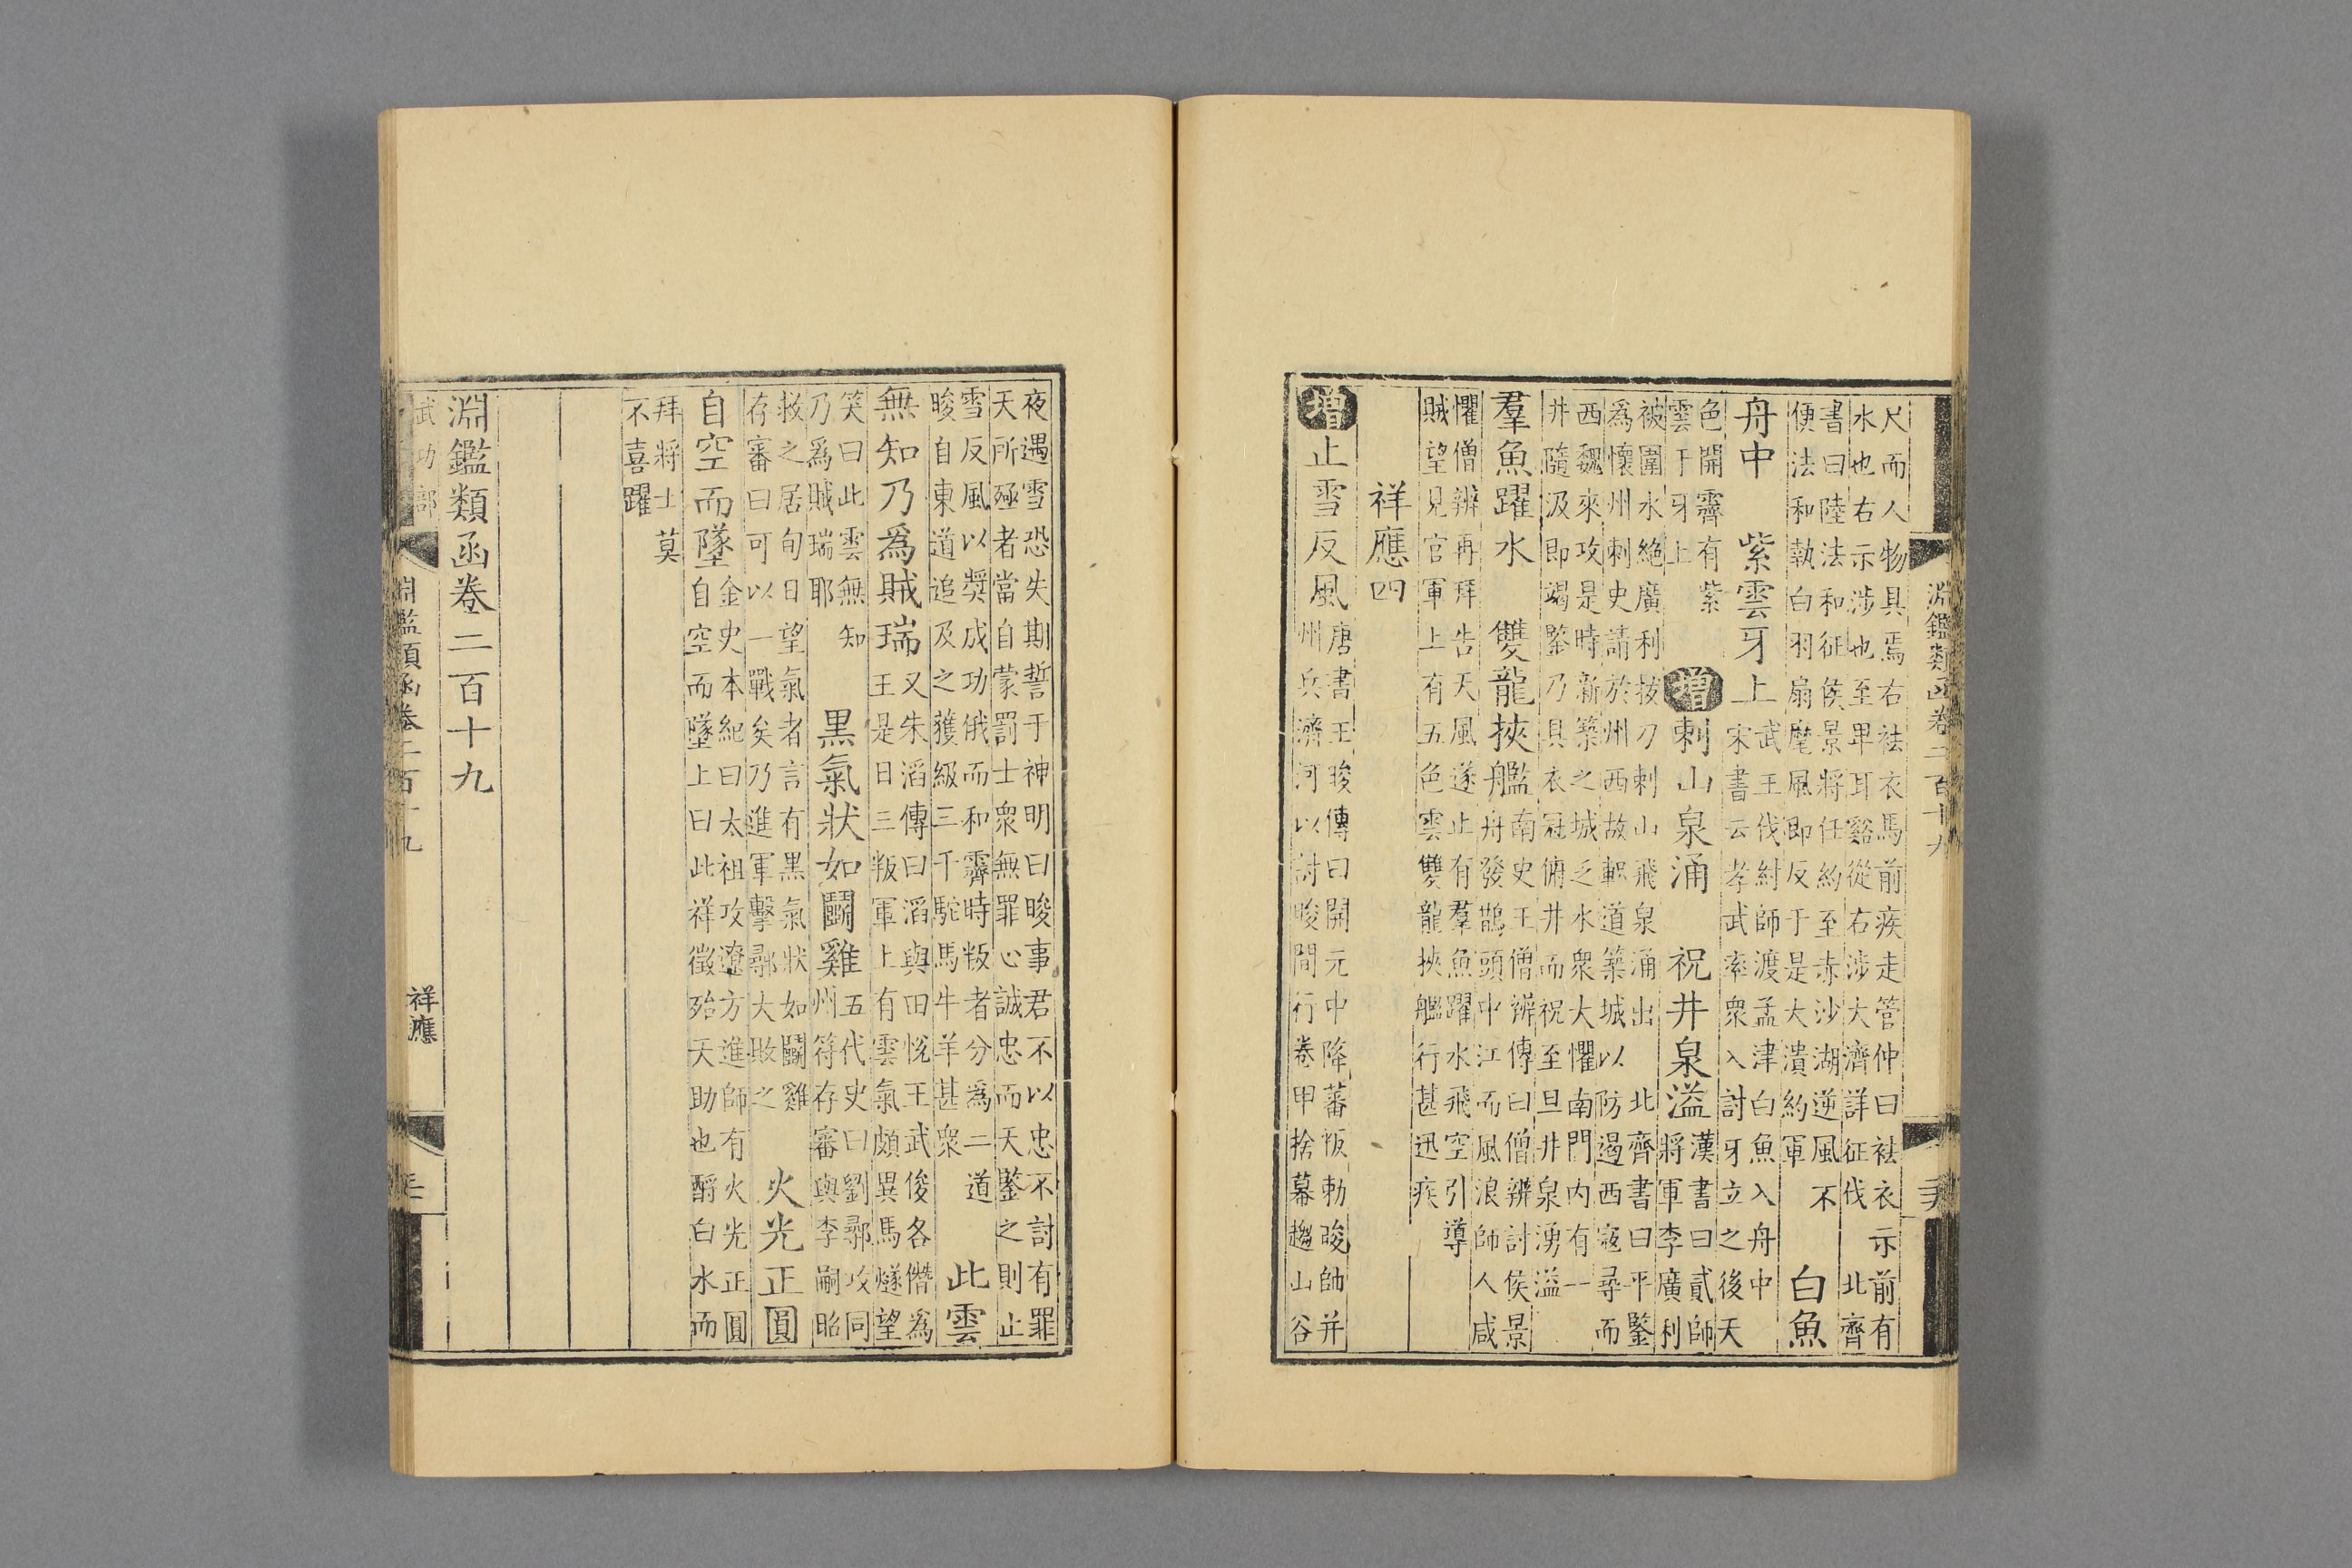 淵鑑類函卷二百十九
尺而人物具焉右袪衣馬前疾走管仲曰袪衣示前有
水也右示涉也至卑耳谿從右涉大濟詳征伐　北齊
書曰陸法和征侯景將任約至赤沙湖逆風不
便法和執白羽扇麾風即反于是大潰約軍
白魚
舟中　紫雲牙上
武王伐紂師渡孟津白魚入舟中
宋書云孝武率衆入討牙立之後天
色開霽有紫
雲于牙上
增刺山泉涌　祝井泉溢
漢書曰貳師
將軍李廣利
被圍水絕廣利拔刀刺山飛泉涌出　北齊書曰平鑒
爲懷州刺史請於州西故軹道築城以防遏西寇尋而
西魏來攻是時新築之城乏水衆大懼南門内有一
井隨汲即竭鑒乃具衣冠俯井而祝至旦井泉湧溢
羣魚躍水　雙龍挾艦
南史王僧辨傳曰僧辨討侯景
舟發鵲頭中江而風浪師人咸
懼僧辨再拜告天風遂止有羣魚躍水飛空引導
賊望見官軍上有五色雲雙龍挾艦行甚迅疾
祥應四
增止雪反風
唐書王晙傳曰開元中降蕃叛勅晙帥并
州兵濟河以討晙間行卷甲捨幕趨山谷
夜遇雪恐失期誓于神明曰晙事君不以忠不討有罪
天所殛者當自蒙罰士衆無罪心誠忠而天鑒之則止
雪反風以獎成功俄而和霽時叛者分爲二道
晙自東道追及之獲級三千駝馬牛羊甚衆
此雲
無知乃爲賊瑞
又朱滔傳曰滔與田悅王武俊各僭爲
王是日三叛軍上有雲氣頗異馬燧望
笑曰此雲無知
乃爲賊瑞耶
黑氣狀如鬬雞
五代史曰劉鄩攻同
州符存審與李嗣昭
救之居旬日望氣者言有黑氣狀如鬬雞
存審曰可以一戰矣乃進軍擊鄩大敗之
火光正圓
自空而墜
金史本紀曰太祖攻遼方進師有火光正圓
自空而墜上曰此祥徵殆天助也酹白水而
拜將士莫
不喜躍
淵鑑類函卷二百十九
武功部
淵鑑類函卷二百十九
祥應